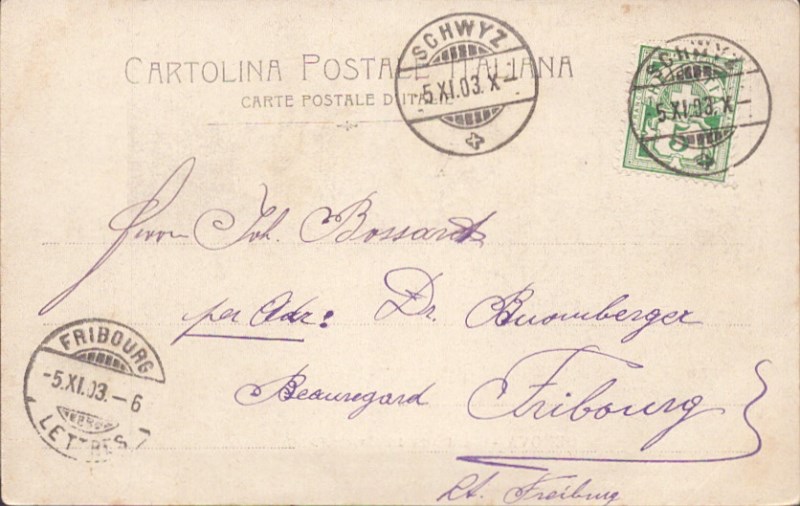 CARTOLINA POSTALE ITALIANA
CARTE POSTALE D'ITALIE
SCHWYZ
-5.XI.03.X-
SCHWYZ
-5.XI.03.X-
5
Herrn Joh. Bossard
per Adr: Dr. Buomberger
Beauregard Fribourg
kt. Freiburg
FRIBOURG
-5.XI.03.-6
LETTRES